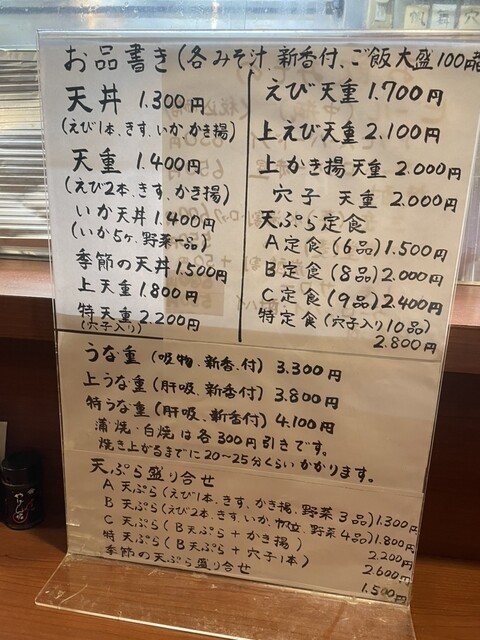 お品書き(各みそ汁、新香付、ご飯大盛100円
天丼 1.300円
(えび1本、きす、いか、かき揚)
天重 1.400円
(えび2本、きす、かき揚)
いか天丼 1.400円
(いか5ヶ、野菜一品)
季節の天丼 1.500円
上天重 1.800円
特天重 2.200円
(穴子入り)
えび天重 1.700円
上えび天重 2.100円
上かき揚天重 2.000円
穴子 天重 2.000円
天ぷら定食
A定食(6品) 1.500円
B定食(8品) 2.000円
C定食(9品) 2.400円
特定食(穴子入り10品)
2.800円
うな重(吸物、新香、付) 3.300円
上うな重(肝吸、新香付) 3.800円
特うな重(肝吸、新香付) 4.100円
蒲焼・白焼は各300円引きです。
焼き上がるまでに20~25分くらいかかります。
天ぷら盛り合せ
A 天ぷら(えび1本、きす、かき揚、野菜3品) 1.300円
B 天ぷら(えび2本、きす、いか、帆立、野菜4品) 1.800円
C 天ぷら(B天ぷら+かき揚) 2.200円
特 天ぷら(B天ぷら+穴子1本) 2.600円
季節の天ぷら盛り合せ 1.500円